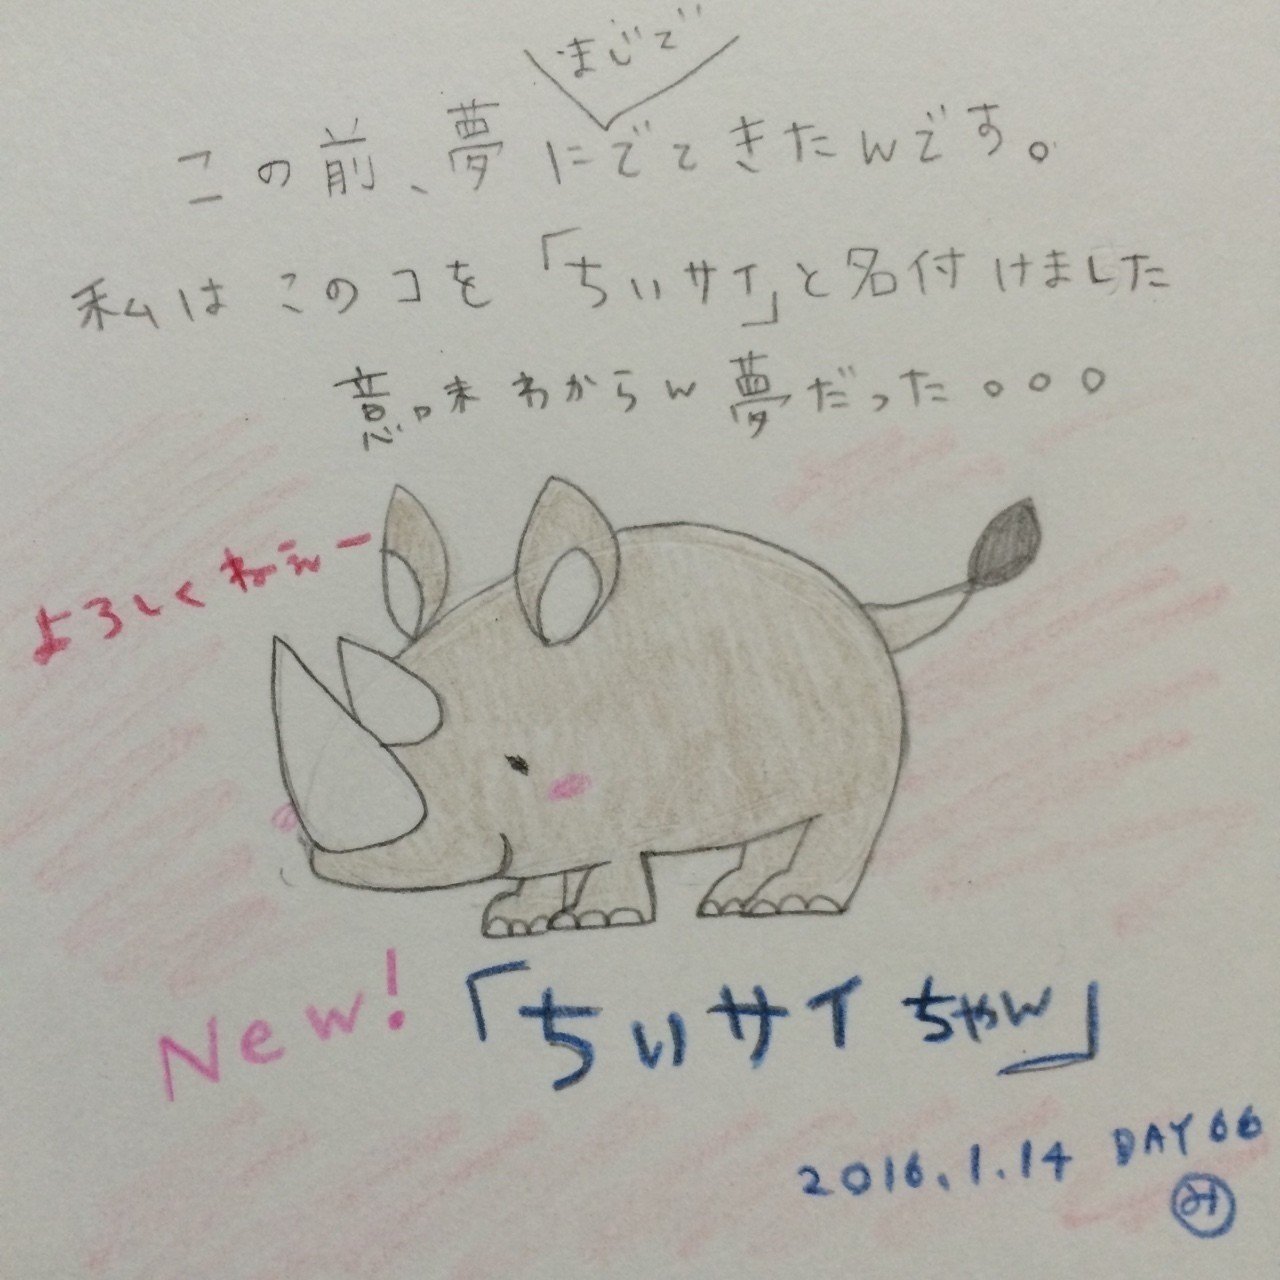 まじで
この前、夢にでてきたんです。
私はこのコを「ちいサイ」と名付けました
意味わからん夢だった。。。
よろしくねぇー
New! 「ちいサイちゃん」
2016.1.14 DAY66
み